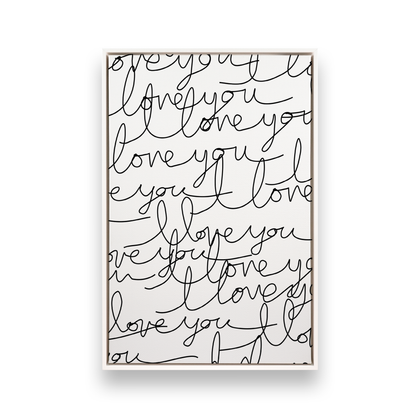 love you I lo
I love you
I love you
love you I l
e you I love
I love you
ove you I love y
I love y
love you I lo
you